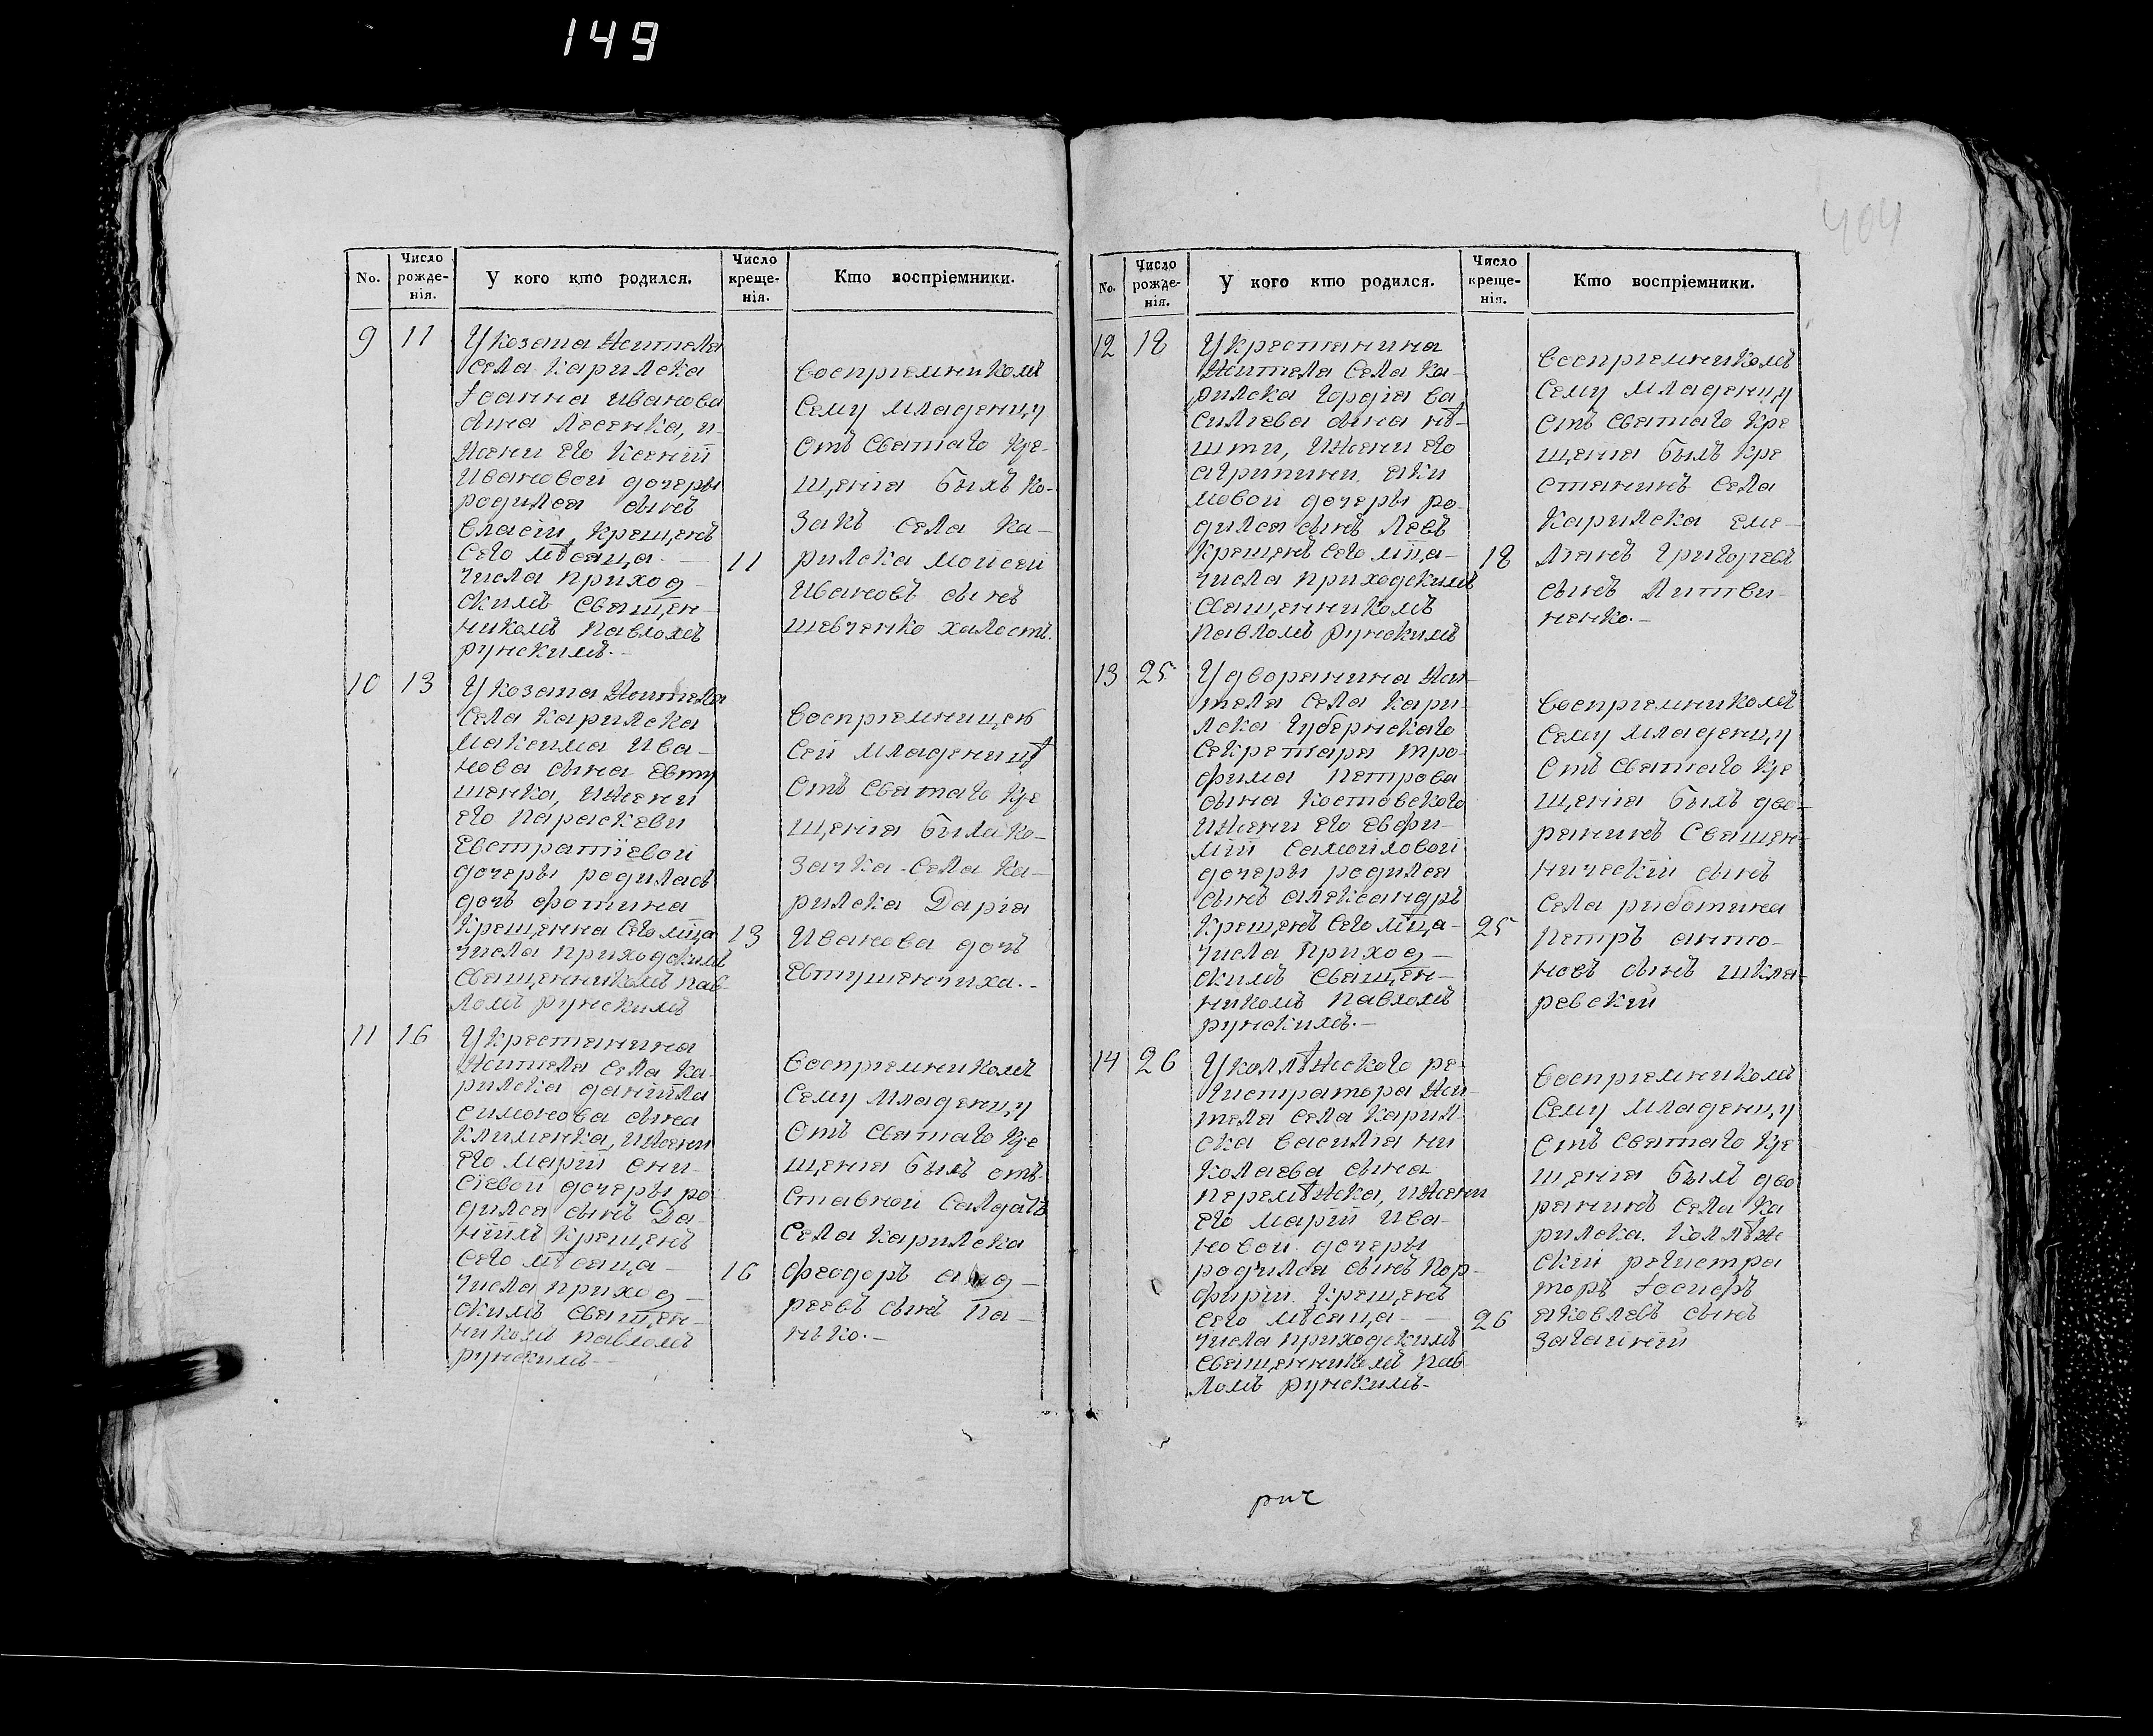 149
404
No.
Число рожде-нія.
У кого кто родился.
Число креще-нія.
Кто воспріемники.
9
11
У козака Жителя
села Карилска
Іоанна Иванова
сына Лесенка, и
жени его Ксеніи
Ивановой дочеры
родился сынъ
Власій, крещенъ
сего мѣсяца
числа приход-
скимъ священ-
никомъ Павломъ
Рунскимъ.-
11
воспріемникомъ
сему младенцу
отъ святаго кре-
щенія былъ ко-
закъ села Ка-
рилска Мойсей
Ивановъ сынъ
Шевченко халостъ.
10
13
У козака Жителя
села Карилска
Максима Ива-
нова сына Евту
шенка, и жени
его Параскеви
Евстратіевой
дочеры родилась
дочъ Фотина
крещенна сего мца
числа приходскимъ
священникомъ Пав-
ломъ Рунскимъ
13
воспріемницею
сей младеницѣ
отъ святаго кре
щенія была ко-
зачка села Ка-
рилска Дарія
Иванова дочъ
Евтушенчиха.-
11
16
У крестянина
Жителя села Ка-
рилска Даніила
Симонова сына
Клименка, и жени
его Маріи Они-
сіевой дочеры ро-
дился сынъ Да-
ніилъ крещенъ
сего мѣсяца-
числа приход-
скимъ священ-
никомъ Павломъ
Рунскимъ-
16
воспріемникомъ
сему младенцу
отъ святаго кре
щенія былъ отъ-
ставной салдатъ
села Карилска
Феодоръ
реевъ сынъ Па-
нъко.-
No.
Число рожде-нія.
У кого кто родился.
Число креще-нія.
Кто воспріемники.
12
18
У крестянина
Жителя села Ка-
рилска Гордія Ва
силиева сына
и жени его
Агрипини Аки
мовой дочеры ро-
дился сынъ Левъ
крещенъ сего мца-
числа приходскимъ
священникомъ
Павломъ Рунскимъ
18
воспріемникомъ
сему младенцу
отъ святаго кре
щенія былъ кре
стянинъ села
Карилска Еме-
лянъ Григоревъ
сынъ Литви-
ненко.-
13
25
У дворянина Жи-
теля села Кари-
лска губернскаго
секретаря Тро-
фима Петрова
сына Костовского
и жени его Евфи-
міи Самойловой
дочеры родился
сынъ Александръ
крещенъ сего мца-
числа приход-
скимъ священ-
никомъ Павломъ
Рунскимъ.-
25
воспріемникомъ
сему младенцу
отъ святаго кре
щенія былъ дво-
рянинъ священ-
ническій сынъ
села Риботина
Петръ Анто-
новъ сынъ Шкля-
ревскій
14
26
У коллѣжского ре-
гистратора Жи-
теля села Карил-
ска Василія Ни
колаева сына
Перемѣжка, и жени
его Маріи Ива-
новой дочеры
родился сынъ Пор-
фирій крещенъ
сего мѣсяца-
числа приходскимъ
священникомъ Пав-
ломъ Рунскимъ-
26
воспріемникомъ
сему младенцу
отъ святаго кре
щенія былъ дво
рянинъ села Ка
рилска. коллѣж-
скій регистра
торъ Іосифъ
Яковлевъ сынъ
Загайній